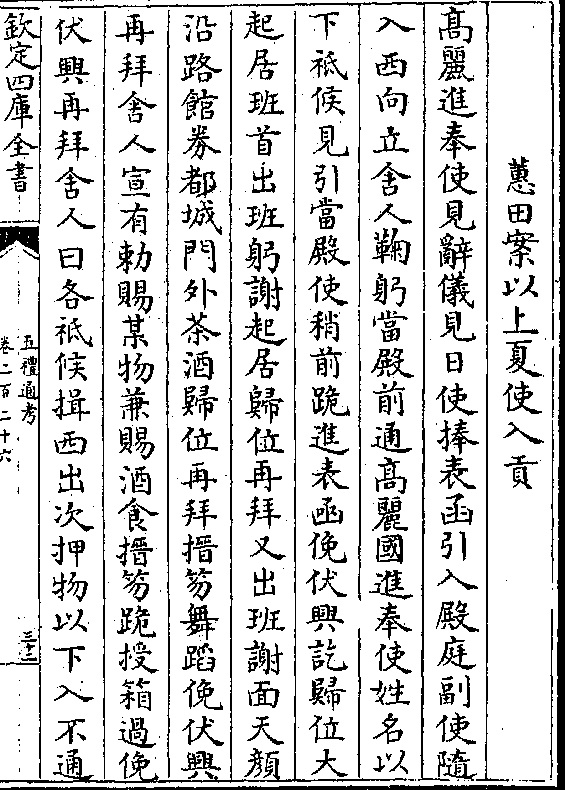 蕙田案以上夏使入貢
高麗進奉使見辭儀見日使捧表函引入殿庭副使隨
入西向立舍人鞠躬當殿前通高麗國進奉使姓名以
下祗候見引當殿使稍前跪進表函俛伏興訖歸位大
起居班首出班躬謝起居歸位再拜又出班謝面天顔
沿路館券都城門外茶酒歸位再拜搢笏舞蹈俛伏興
再拜舍人宣有勅賜某物兼賜酒食搢笏跪授箱過俛
伏興再拜舍人曰各祗候揖西出次押物以下入不通
欽定四庫全書
五禮通考
卷二百二十六
三十二